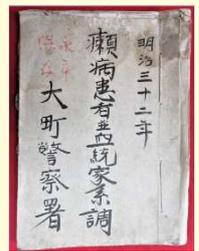 明治三十二年
癩病患者並血統家系調
永年
保存
大町警察署